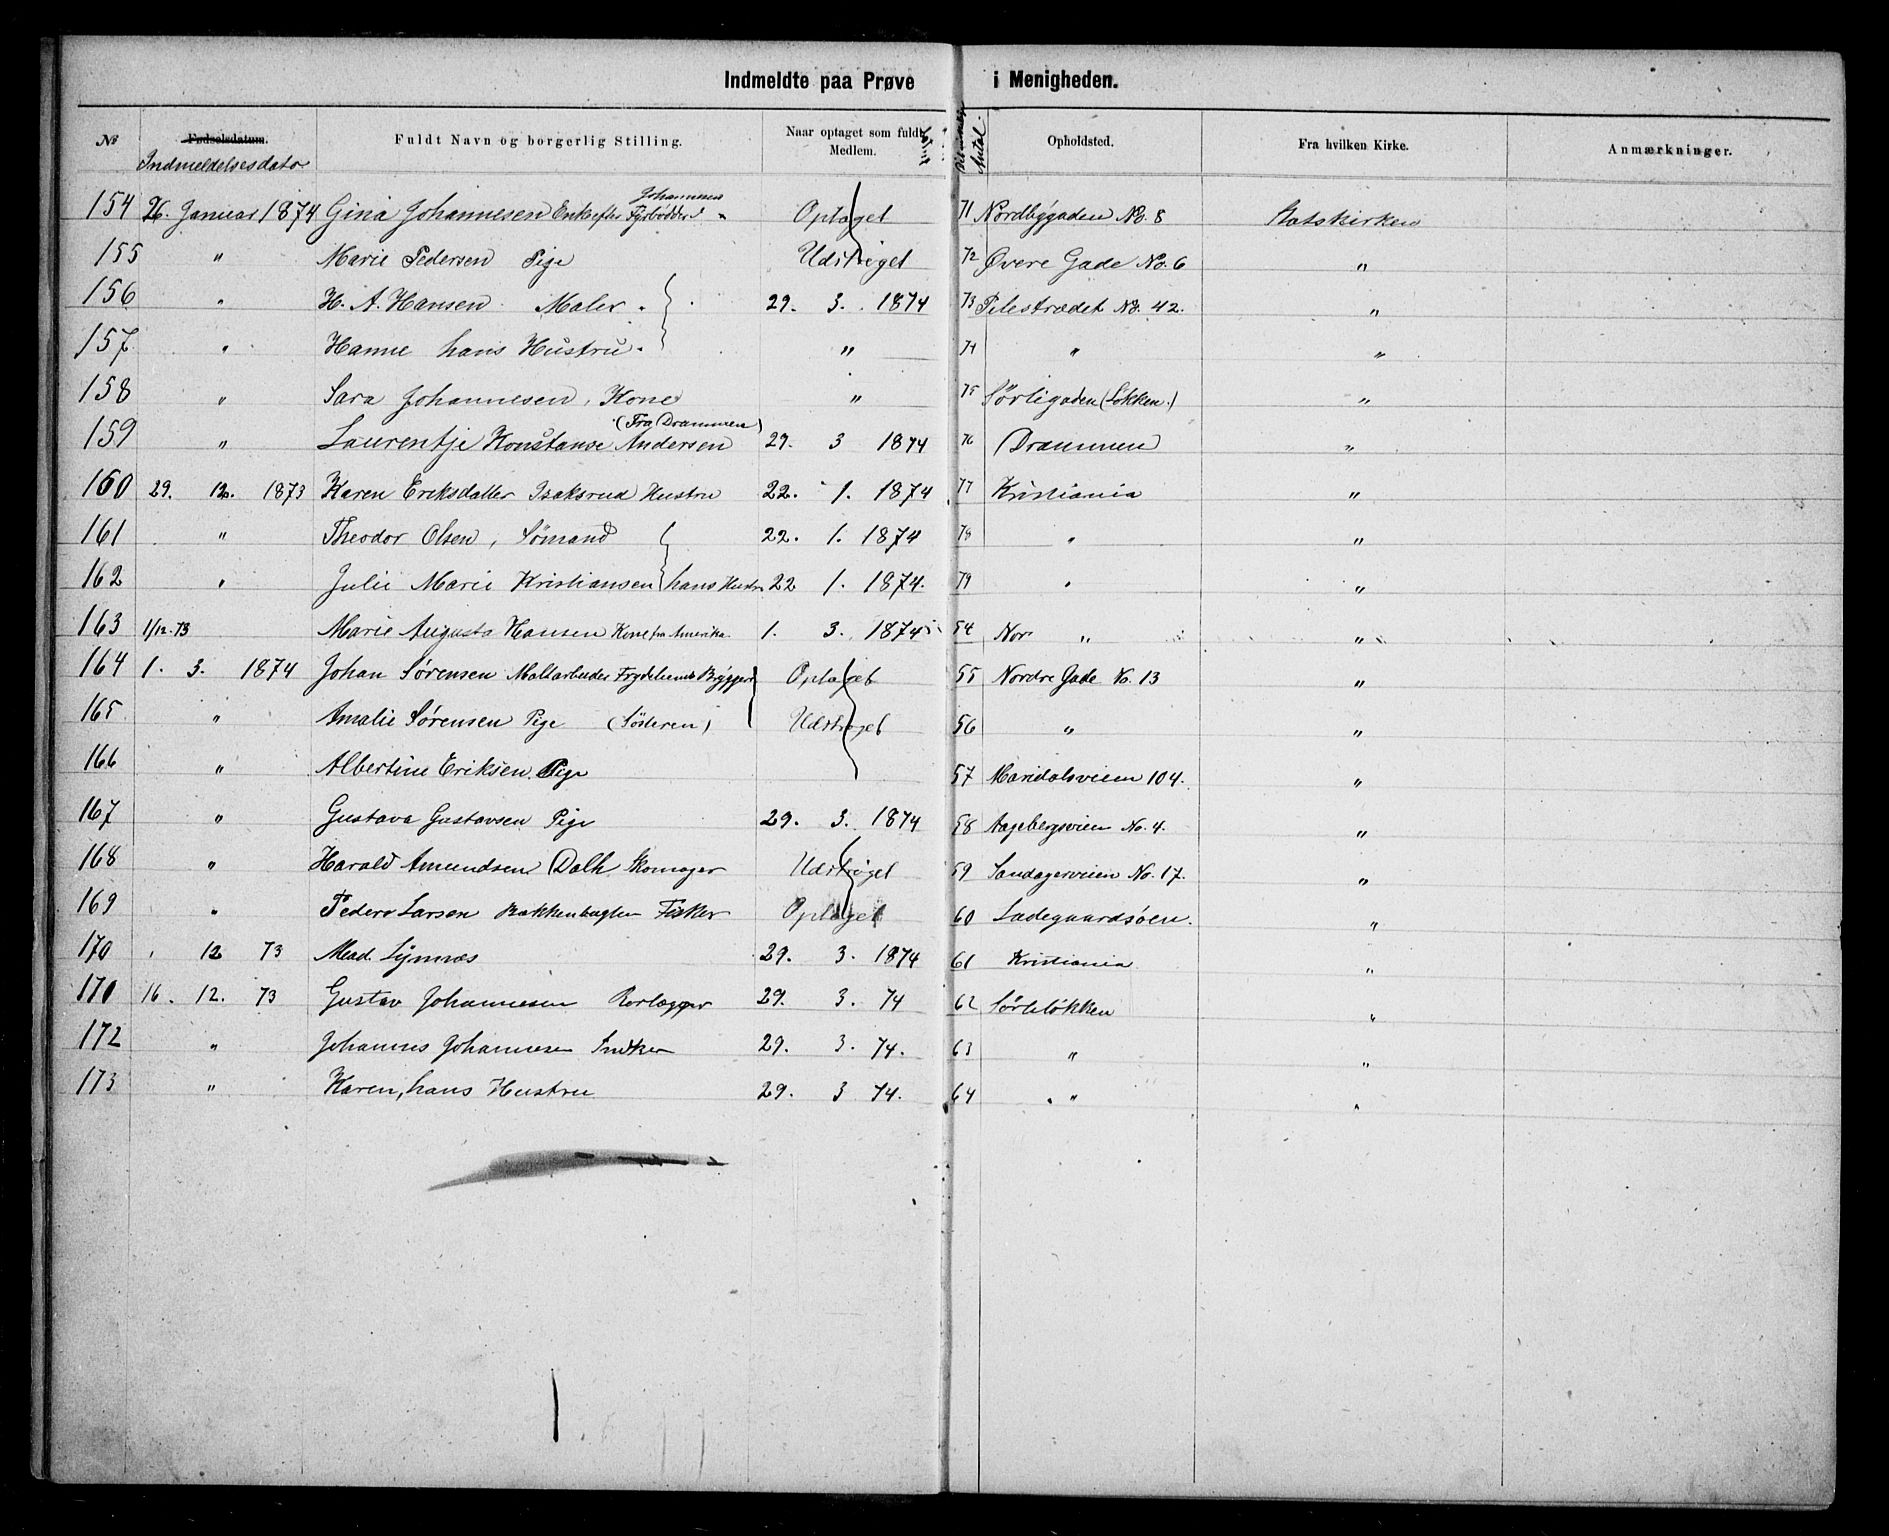 Indmeldte paa Prøve i Menigheden.
№ Fødselsdatum. Fuldt Navn og borgerlig Stilling. Naar optaget som fuldt Medlem. Antal. Opholdsted. Fra hvilken Kirke. Anmærkninger.
Indmeldelsesdato
Johannesen
154 26. Januar 1874 Gina Johannesen Enke efter Fyrbödder J " Optaget 71 Nordbygaden No. 8 Statskirken
155 " Marie Pedersen Pige Udströget 72 Øvere Gade No. 6 "
156 " H. A. Hansen Maler. 29. 3. 1874 73 Pilestrædet No. 42. "
157 " Hanne hans Hustru. " 74 " "
158 " Sara Johannesen, Kone " 75 Sörligaden (Lökken.) "
(Fra Drammen)
159 " Laurentje Konstanse Andersen 29. 3 1874 76 (Drammen) "
160 29. 12. 1873 Karen Eriksdatter Isaksrud Hustru 22. 1. 1874 77 Kristiania "
161 " Theodor Olsen, Sömand 22. 1. 1874 78 " "
162 " Julie Marie Kristiansen hans Hustru 22 1. 1874. 79 " "
163 1/12. 73 Marie Augusta Hansen Kone fra Amerika. 1. 3. 1874 54 Nor. " "
164 1. 3. 1874 Johan Sørensen Maltarbeider Frydenlunds Bryggeri Optaget 55 Nordre Gade No. 13 "
165 " Amalie Sørensen Pige (Søsteren) Udströget 56 " "
166 " Albertine Eriksen. Pige 57 Maridalsveien 104. "
167 " Gustava Gustavsen Pige 29. 3. 1874 58 Aagebergsveien No. 4. "
168 " Harald Amundsen Dalh Skomager Udströget 59 Sandagerveien No. 17. "
169 " Peder Larsen Bakkenhagten Fisker Optaget 60 Ladegaardsöen. "
170 " 12 73 Mad. Lymnæs 29. 3. 1874 61 Kristiania "
170 16. 12. 73 Gustav Johannesen Rorlægger 29. 3. 74 62 Sörlelökken "
172 " Johannes Johannesen Snedker 29. 3. 74. 63 " "
173 " Karen, hans Hustru 29. 3 74. 64 " "